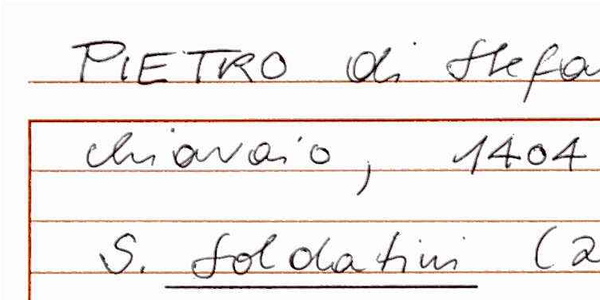 PIETRO di Stefa
chiavaio, 1404
S. Soldatini (2